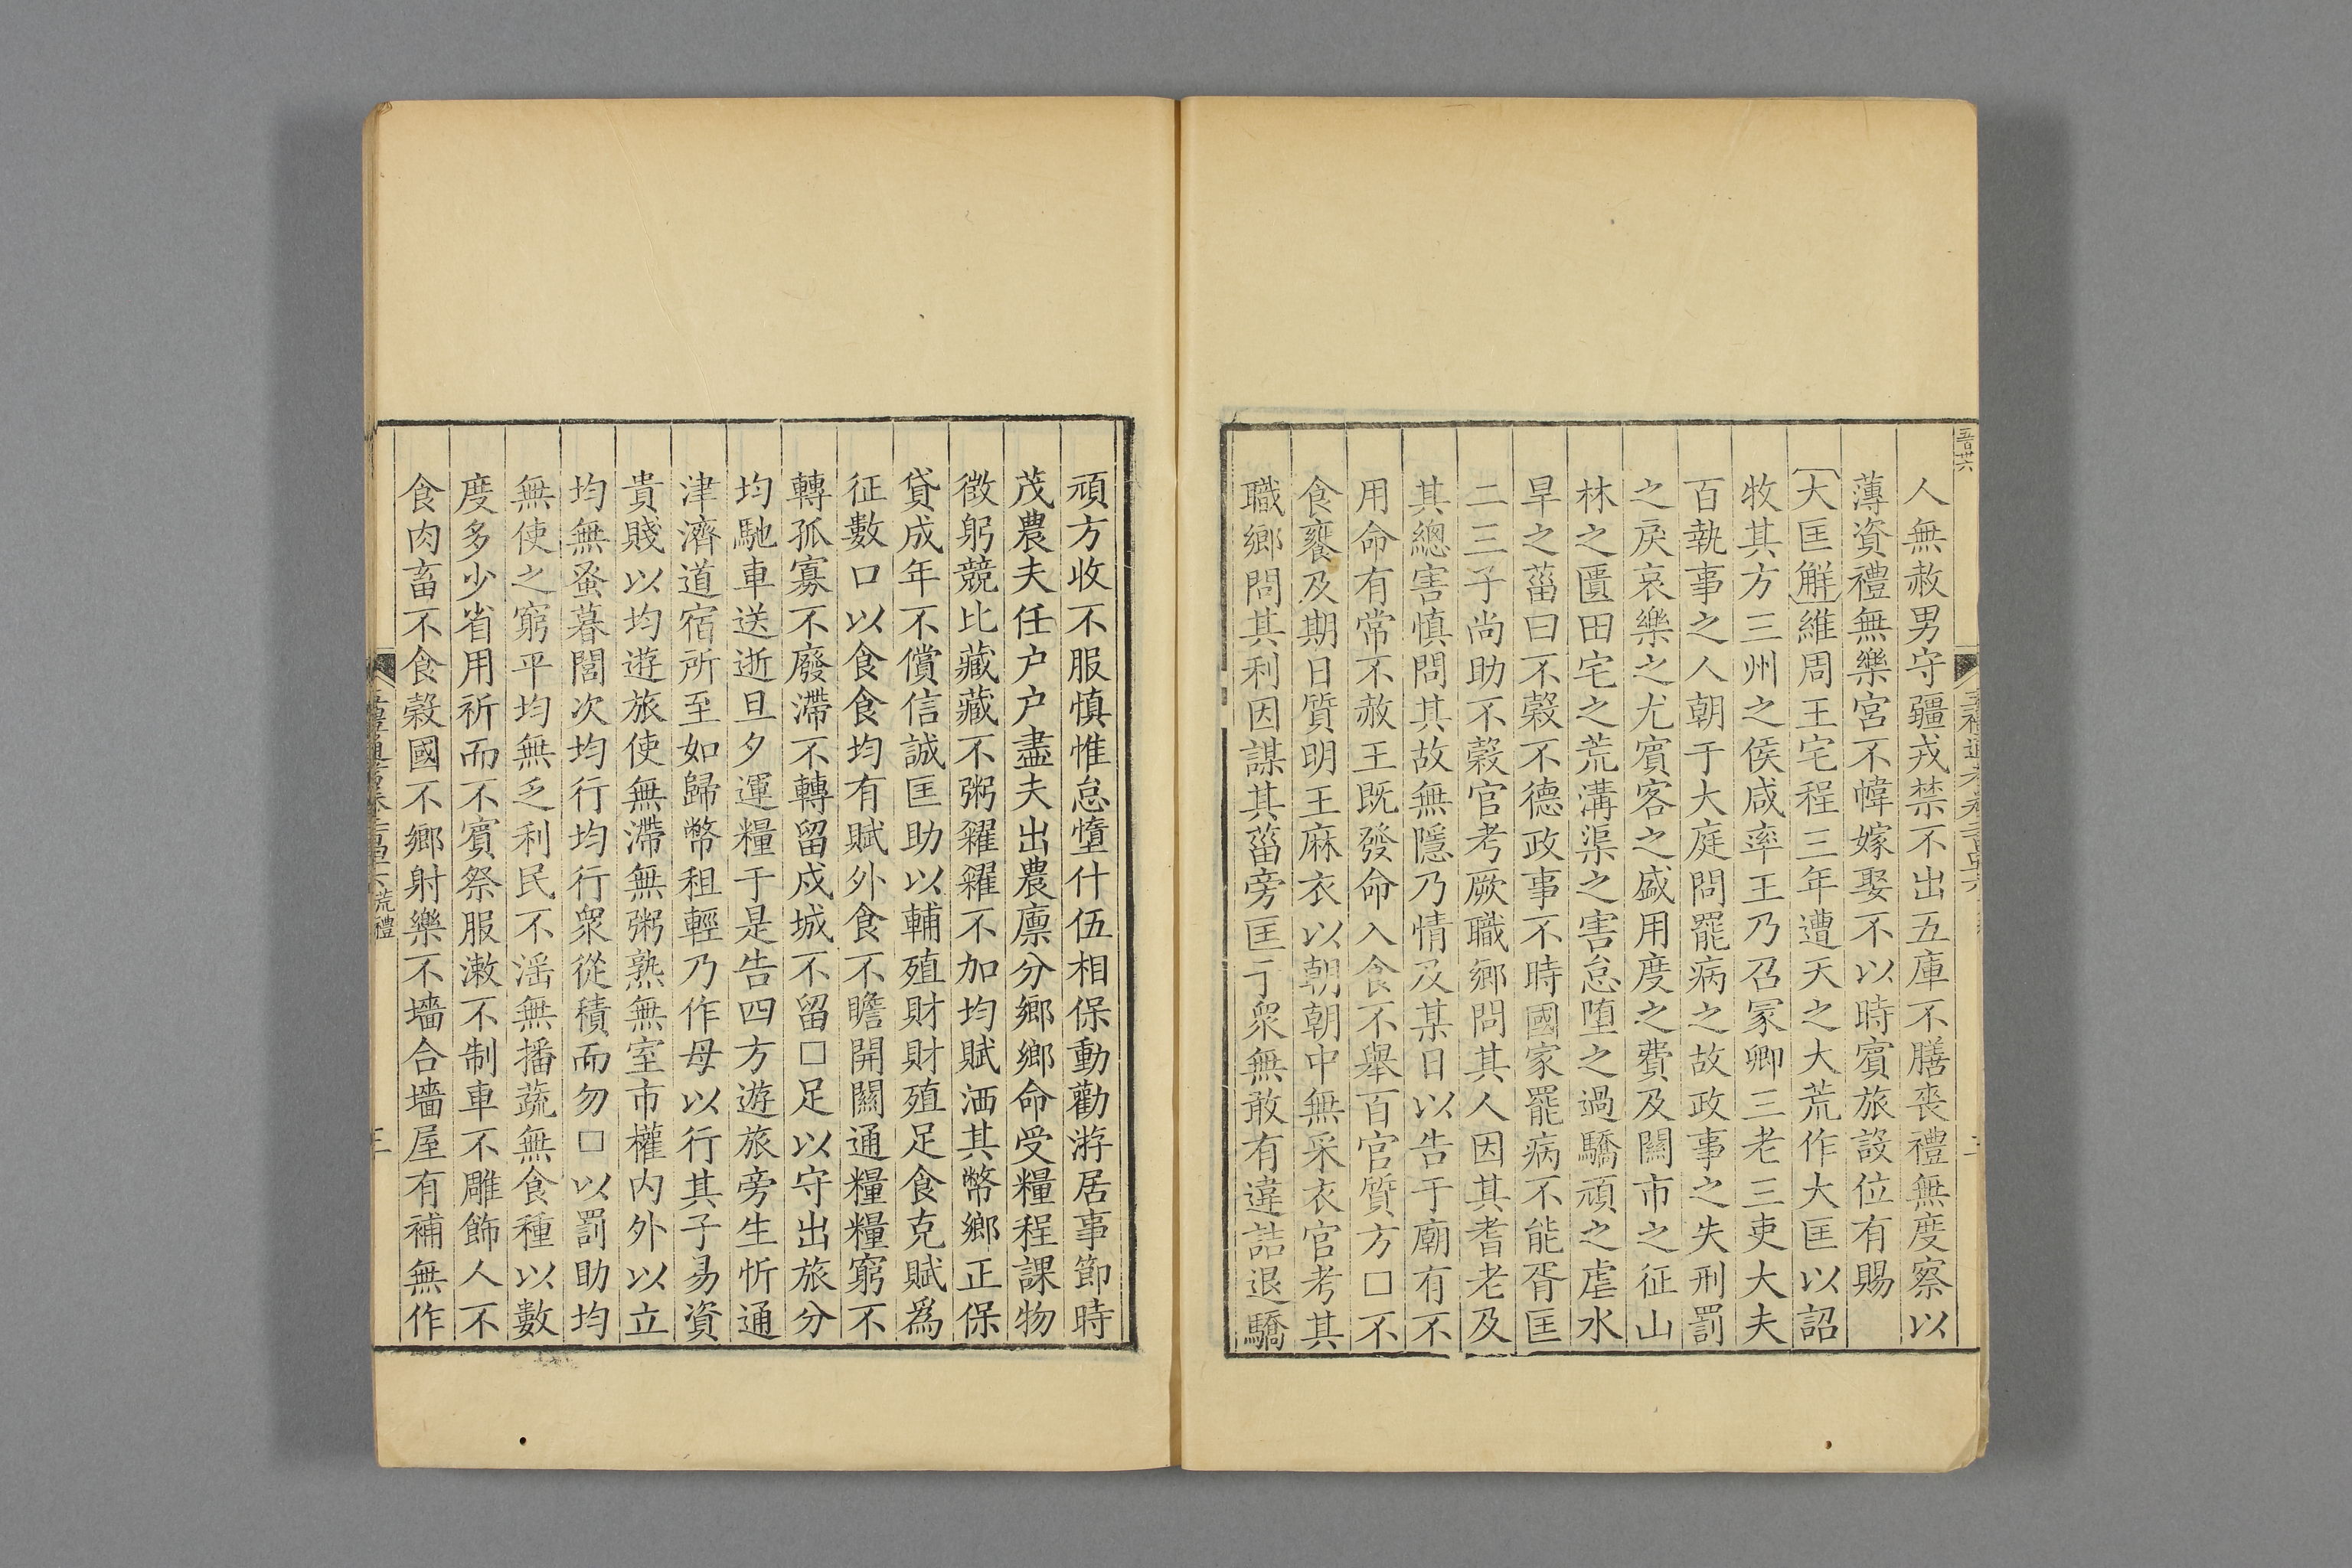 人無赦男守疆戎禁不出五庫不膳喪禮無度察以
薄資禮無樂宮不幃嫁娶不以時賓旅設位有賜
大匡解維周王宅程三年遭天之大荒作大匡以詔
牧其方三州之侯咸率王乃召冢卿三老三吏大夫
百執事之人朝于大庭問罷病之故政事之失刑罰
之戾哀樂之尤賓客之盛用度之費及關市之征山
林之匱田宅之荒溝渠之害怠墮之過驕頑之虐水
旱之菑曰不穀不德政事不時國家罷病不能胥匡
二三子尚助不穀官考厥職鄉問其人因其耆老及
其總害慎問其故無隱乃情及某日以告于廟有不
用命有常不赦王既發命入食不舉百官質方□不
食饔及期日質明王麻衣以朝朝中無采衣官考其
職鄉問其利因謀其菑旁匡于眾無敢有違詰退驕
頑方收不服慎惟怠墮什伍相保動勸游居事節時
茂農夫任户户盡夫出農廩分鄉鄉命受糧程課物
徵躬競比藏藏不粥糴糴不加均賦洒其幣鄉正保
貸成年不償信誠匡助以輔殖財財殖足食克賦爲
征數口以食食均有賦外食不瞻開關通糧糧窮不
轉孤寡不廢滯不轉留戍城不留□足以守出旅分
均馳車送逝旦夕運糧于是告四方遊旅旁生忻通
津濟道宿所至如歸幣租輕乃作母以行其子易資
貴賤以均遊旅使無滯無粥熟無室市權内外以立
均無蚤暮閭次均行均行衆從積而勿□以罰助均
無使之窮平均無乏利民不淫無播蔬無食種以數
度多少省用祈而不賓祭服漱不制車不雕飾人不
食肉畜不食穀國不鄉射樂不墻合墻屋有補無作
荒禮